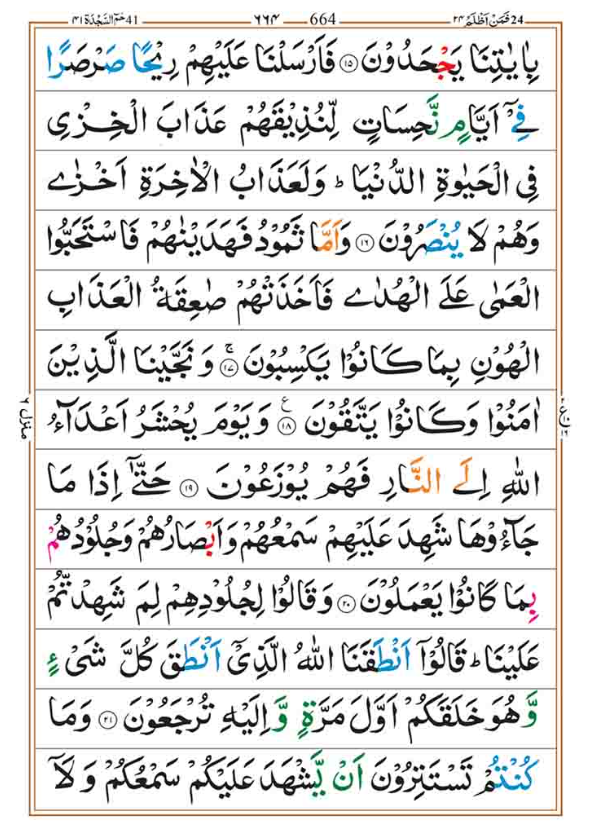 24 فَمَنْ اَظْلَمُ ٢٤
664 ٦٦٤
41 حٰمٓ السَّجْدَة ٤١
بِاٰيٰتِنَا يَجْحَدُوْنَ ۝١٥ فَاَرْسَلْنَا عَلَيْهِمْ رِيْحًا صَرْصَرًا
فِيْٓ اَيَّامٍ نَّحِسَاتٍ لِّنُذِيْقَهُمْ عَذَابَ الْخِزْيِ
فِى الْحَيٰوةِ الدُّنْيَا ؕ وَلَعَذَابُ الْاٰخِرَةِ اَخْزٰى
وَهُمْ لَا يُنْصَرُوْنَ ۝١٦ وَاَمَّا ثَمُوْدُ فَهَدَيْنٰهُمْ فَاسْتَحَبُّوا
الْعَمٰى عَلَى الْهُدٰى فَاَخَذَتْهُمْ صٰعِقَةُ الْعَذَابِ
الْهُوْنِ بِمَا كَانُوْا يَكْسِبُوْنَ ۝١٧ۚ وَ نَجَّيْنَا الَّذِيْنَ
اٰمَنُوْا وَكَانُوْا يَتَّقُوْنَ ۝١٨ ع وَيَوْمَ يُحْشَرُ اَعْدَآءُ
اللّٰهِ اِلَى النَّارِ فَهُمْ يُوْزَعُوْنَ ۝١٩ حَتّٰٓى اِذَا مَا
جَآءُوْهَا شَهِدَ عَلَيْهِمْ سَمْعُهُمْ وَاَبْصَارُهُمْ وَجُلُوْدُهُمْ
بِمَا كَانُوْا يَعْمَلُوْنَ ۝٢٠ وَقَالُوْا لِجُلُوْدِهِمْ لِمَ شَهِدْتُّمْ
عَلَيْنَا ؕ قَالُوْٓا اَنْطَقَنَا اللّٰهُ الَّذِيْٓ اَنْطَقَ كُلَّ شَيْءٍ
وَّهُوَ خَلَقَكُمْ اَوَّلَ مَرَّةٍ وَّاِلَيْهِ تُرْجَعُوْنَ ۝٢١ وَمَا
كُنْتُمْ تَسْتَتِرُوْنَ اَنْ يَّشْهَدَ عَلَيْكُمْ سَمْعُكُمْ وَلَآ
منزل ٦